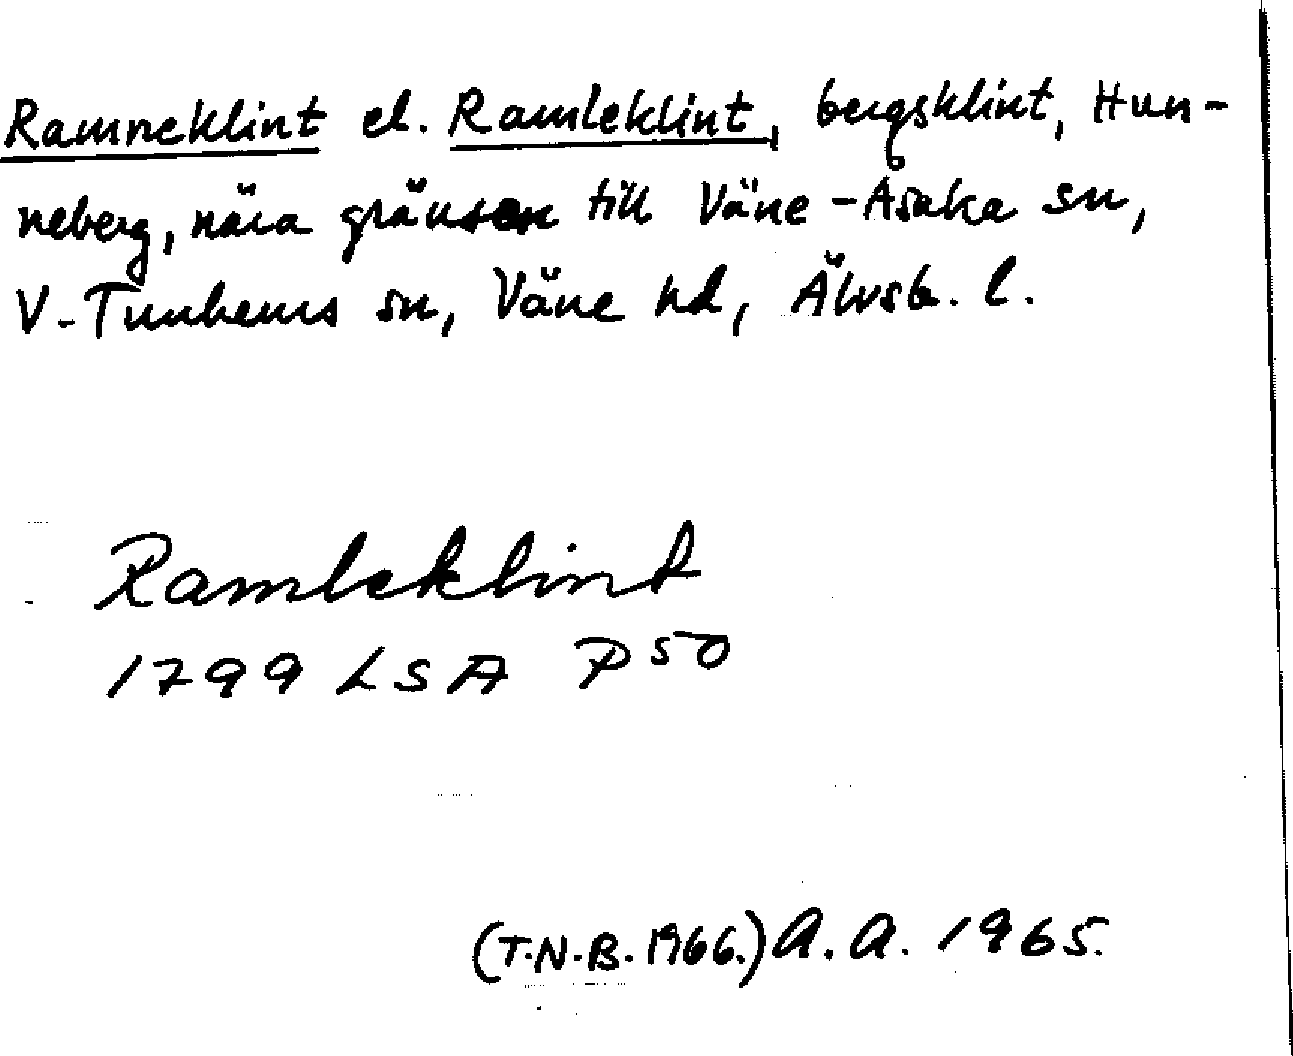 Ramneklint el. Ramleklint, bergsklint, Hun-
neberg, nära gränsen till Väne-Åsaka sn,
V-Tunhems sn, Väne hd, Älvsb. l.
Ramleklint
1799 LSA P50
(T.N.B. 1966.) A. A. 1965.